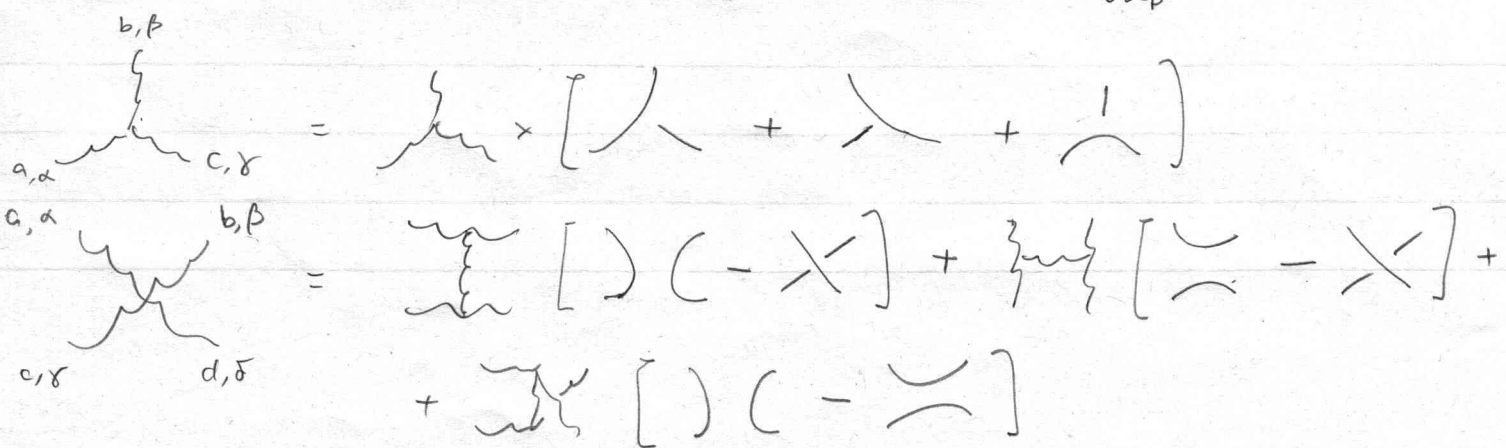 b,β
= × [ + + ]
a,α c,γ
a,α b,β
= [ ) ( - ] + [ - ] +
c,γ d,δ
+ [ ) ( - ]